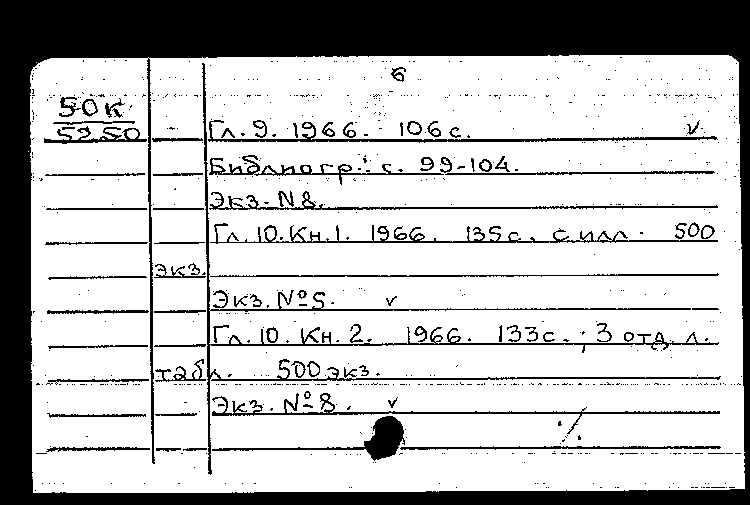 6
50к
5950
Гл. 9. 1966. 106с. v
Библиогр.: с. 99-104.
Экз. N 8.
Гл. 10. Кн. 1. 1966. 135с. с илл. 500
экз.
Экз. № 5. v
Гл. 10. Кн. 2. 1966. 133с.; 3 отд. л.
табл. 500 экз.
Экз. № 8. v
./.